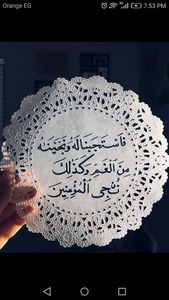 Orange EG
7:53 PM
فاستجبنا له ونجينه
من الغم وكذلك
ننجي المؤمنين